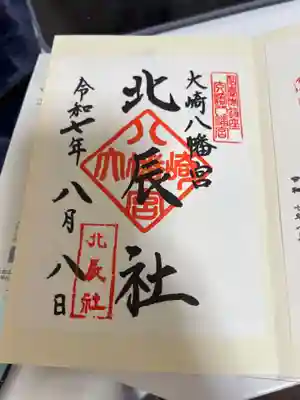 大崎八幡宮
北辰社
令和七年八月八日
大崎八幡宮
北辰社